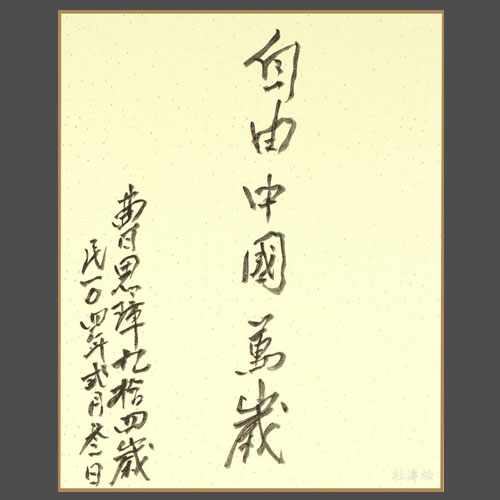 自由中國萬歲
曹思璋九拾四歲
民一〇四年貳月叁日
松濤社